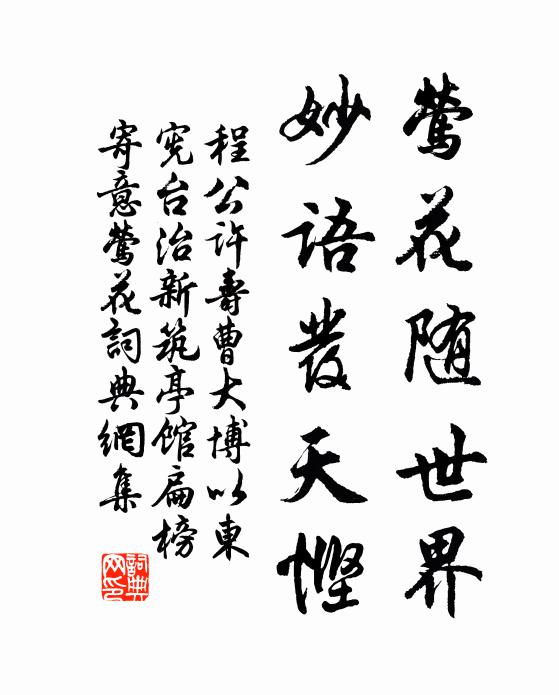 鶯花随世界
妙語發天慳
程公許壽曹大博以東
宪台治新筑亭館扁榜
寄意鶯花詞典網集
詞典
网印